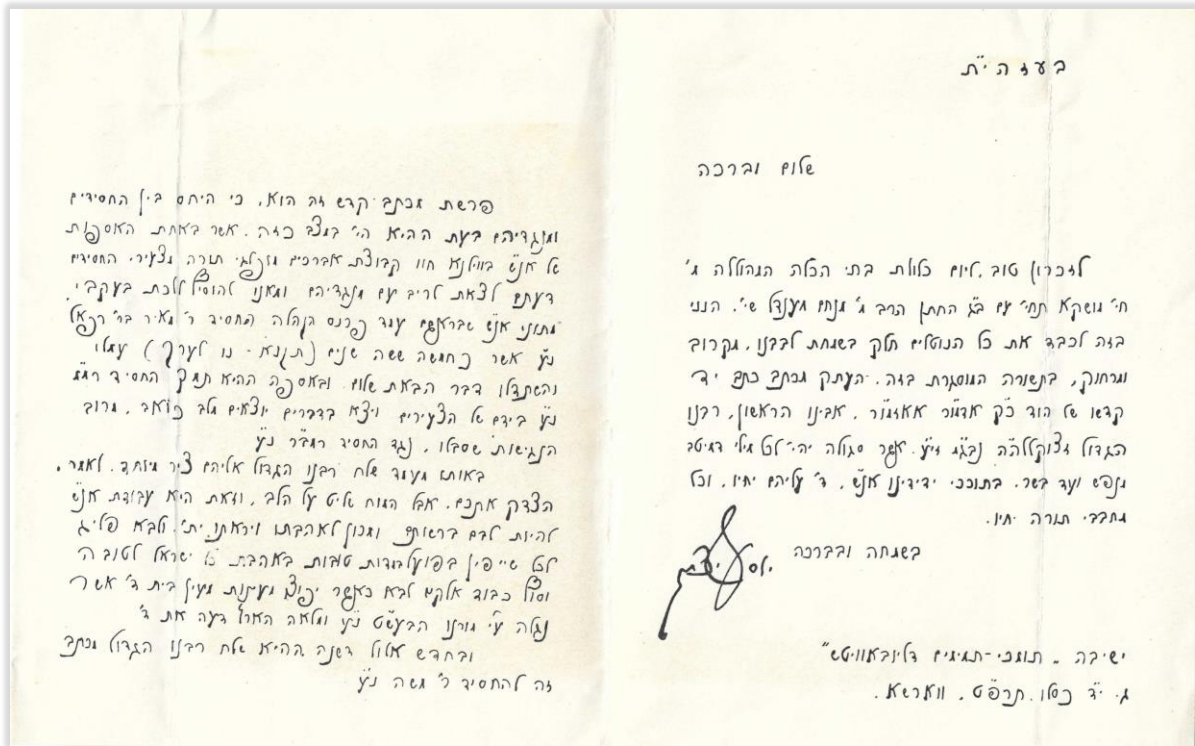 בעזה"ת
שלום וברכה
לזכרון טוב, ליום כלולת בתי הכלה המהוללה מ'
חי' מושקא תחי' עם ב"ג החתן הרב מ' מנחם מענדל שי', הנני
בזה לכבד את כל הנוטלים חלק בשמחת לבבנו, מקרוב
ומרחוק, בתשורה המוסגרת בזה, העתק מכתב כתב יד
קדשו של הוד כ"ק אדמו"ר אאזמו"ר, אבינו הראשון, רבנו
הגדול זצוקללה"ה נבג"מ זי"ע, אשר סגולה יהי' לכל מילי דמיטב
מנפש ועד בשר, בתוככי ידידינו אנ"ש, ד' עליהם יחיו, וכל
מחבבי תורה יחיו.
בשמחה ובברכה
יוסף יצחק
ישיבה "תומכי-תמימים דליובאוויטש"
ג' י"ד כסלו, תרפ"ט, ווארשא.
פרשת מכתב קדש זה הוא, כי היחס בין החסידים
ומנגדיהם בעת ההיא הי' במצב כזה, אשר באחת האספות
של אנ"ש בווילנא חוו קבוצת אברכים מופלגי תורה מצעירי החסידים
דעתם לצאת לריב עם מנגדיהם ומאנו להוסיף ללכת בעקבי
מתוני אנ"ש שבראשם עמד פרנס הקהלה החסיד ר' מאיר בר' רפאל
נ"ע אשר כחמשה ששה שנים (תקנ"א - נו לערך) עמלו
והשתדלו דבר הבאת שלום, ובאספה ההיא תמך החסיד רמ"מ
נ"ע בידם של הצעירים ויצא בדברים יוצאים מלב כואב, מרוב
הנגישות שסבלו, נגד החסיד רמב"ר נ"ע
באותו מעמד שלח רבנו הגדול אליהם ציר מיוחד, לאמר,
הצדק אתכם, אבל המוח שליט על הלב, וזאת היא עבודת אנ"ש
להיות לבם ברשותם ומכון לאהבתו ויראתו ית', ולבא פליג
לכל שייפין בפועל במדות טובות באהבת ישראל לטובה
וסוף כבוד אלקים לבא כאשר יפוצו מעינות מעין בית ד' אשר
נגלה ע"י מורנו הבעש"ט נ"ע ומלאה הארץ דעה את ד'
ובחדש אלול דשנה ההיא שלח רבנו הגדול מכתב
זה להחסיד ר' משה נ"ע